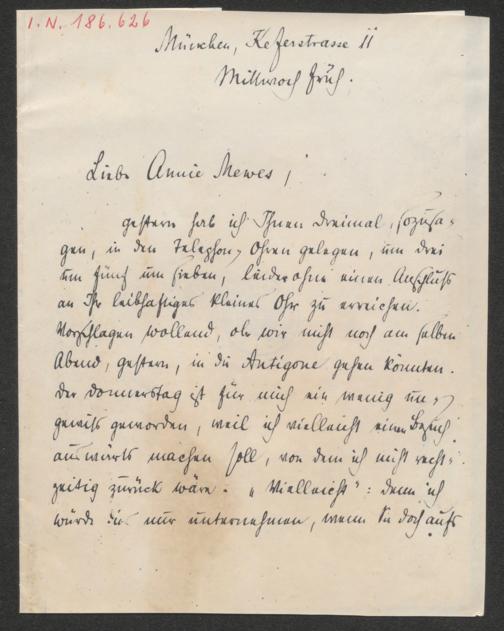 I.N. 186.626
München, Keferstrasse 11
Mittwoch früh.
Liebe Annie Mewes,
gestern hab ich Ihnen dreimal, sozusa-
gen, in den Telephon-Ohren gelegen, um drei
um fünf um sieben, leider ohne einen Anschluß
an Ihr leibhaftiges kleines Ohr zu erreichen.
Vorschlagen wollend, ob wir nicht noch am selben
Abend, gestern, in die Antigone gehen könnten.
Der Donnerstag ist für mich ein wenig un-
gewiss geworden, weil ich vielleicht einen Besuch
auswärts machen soll, von dem ich nicht recht-
zeitig zurück wäre. „Vielleicht": denn ich
würde dies nur unternehmen, wenn Sie doch aufs